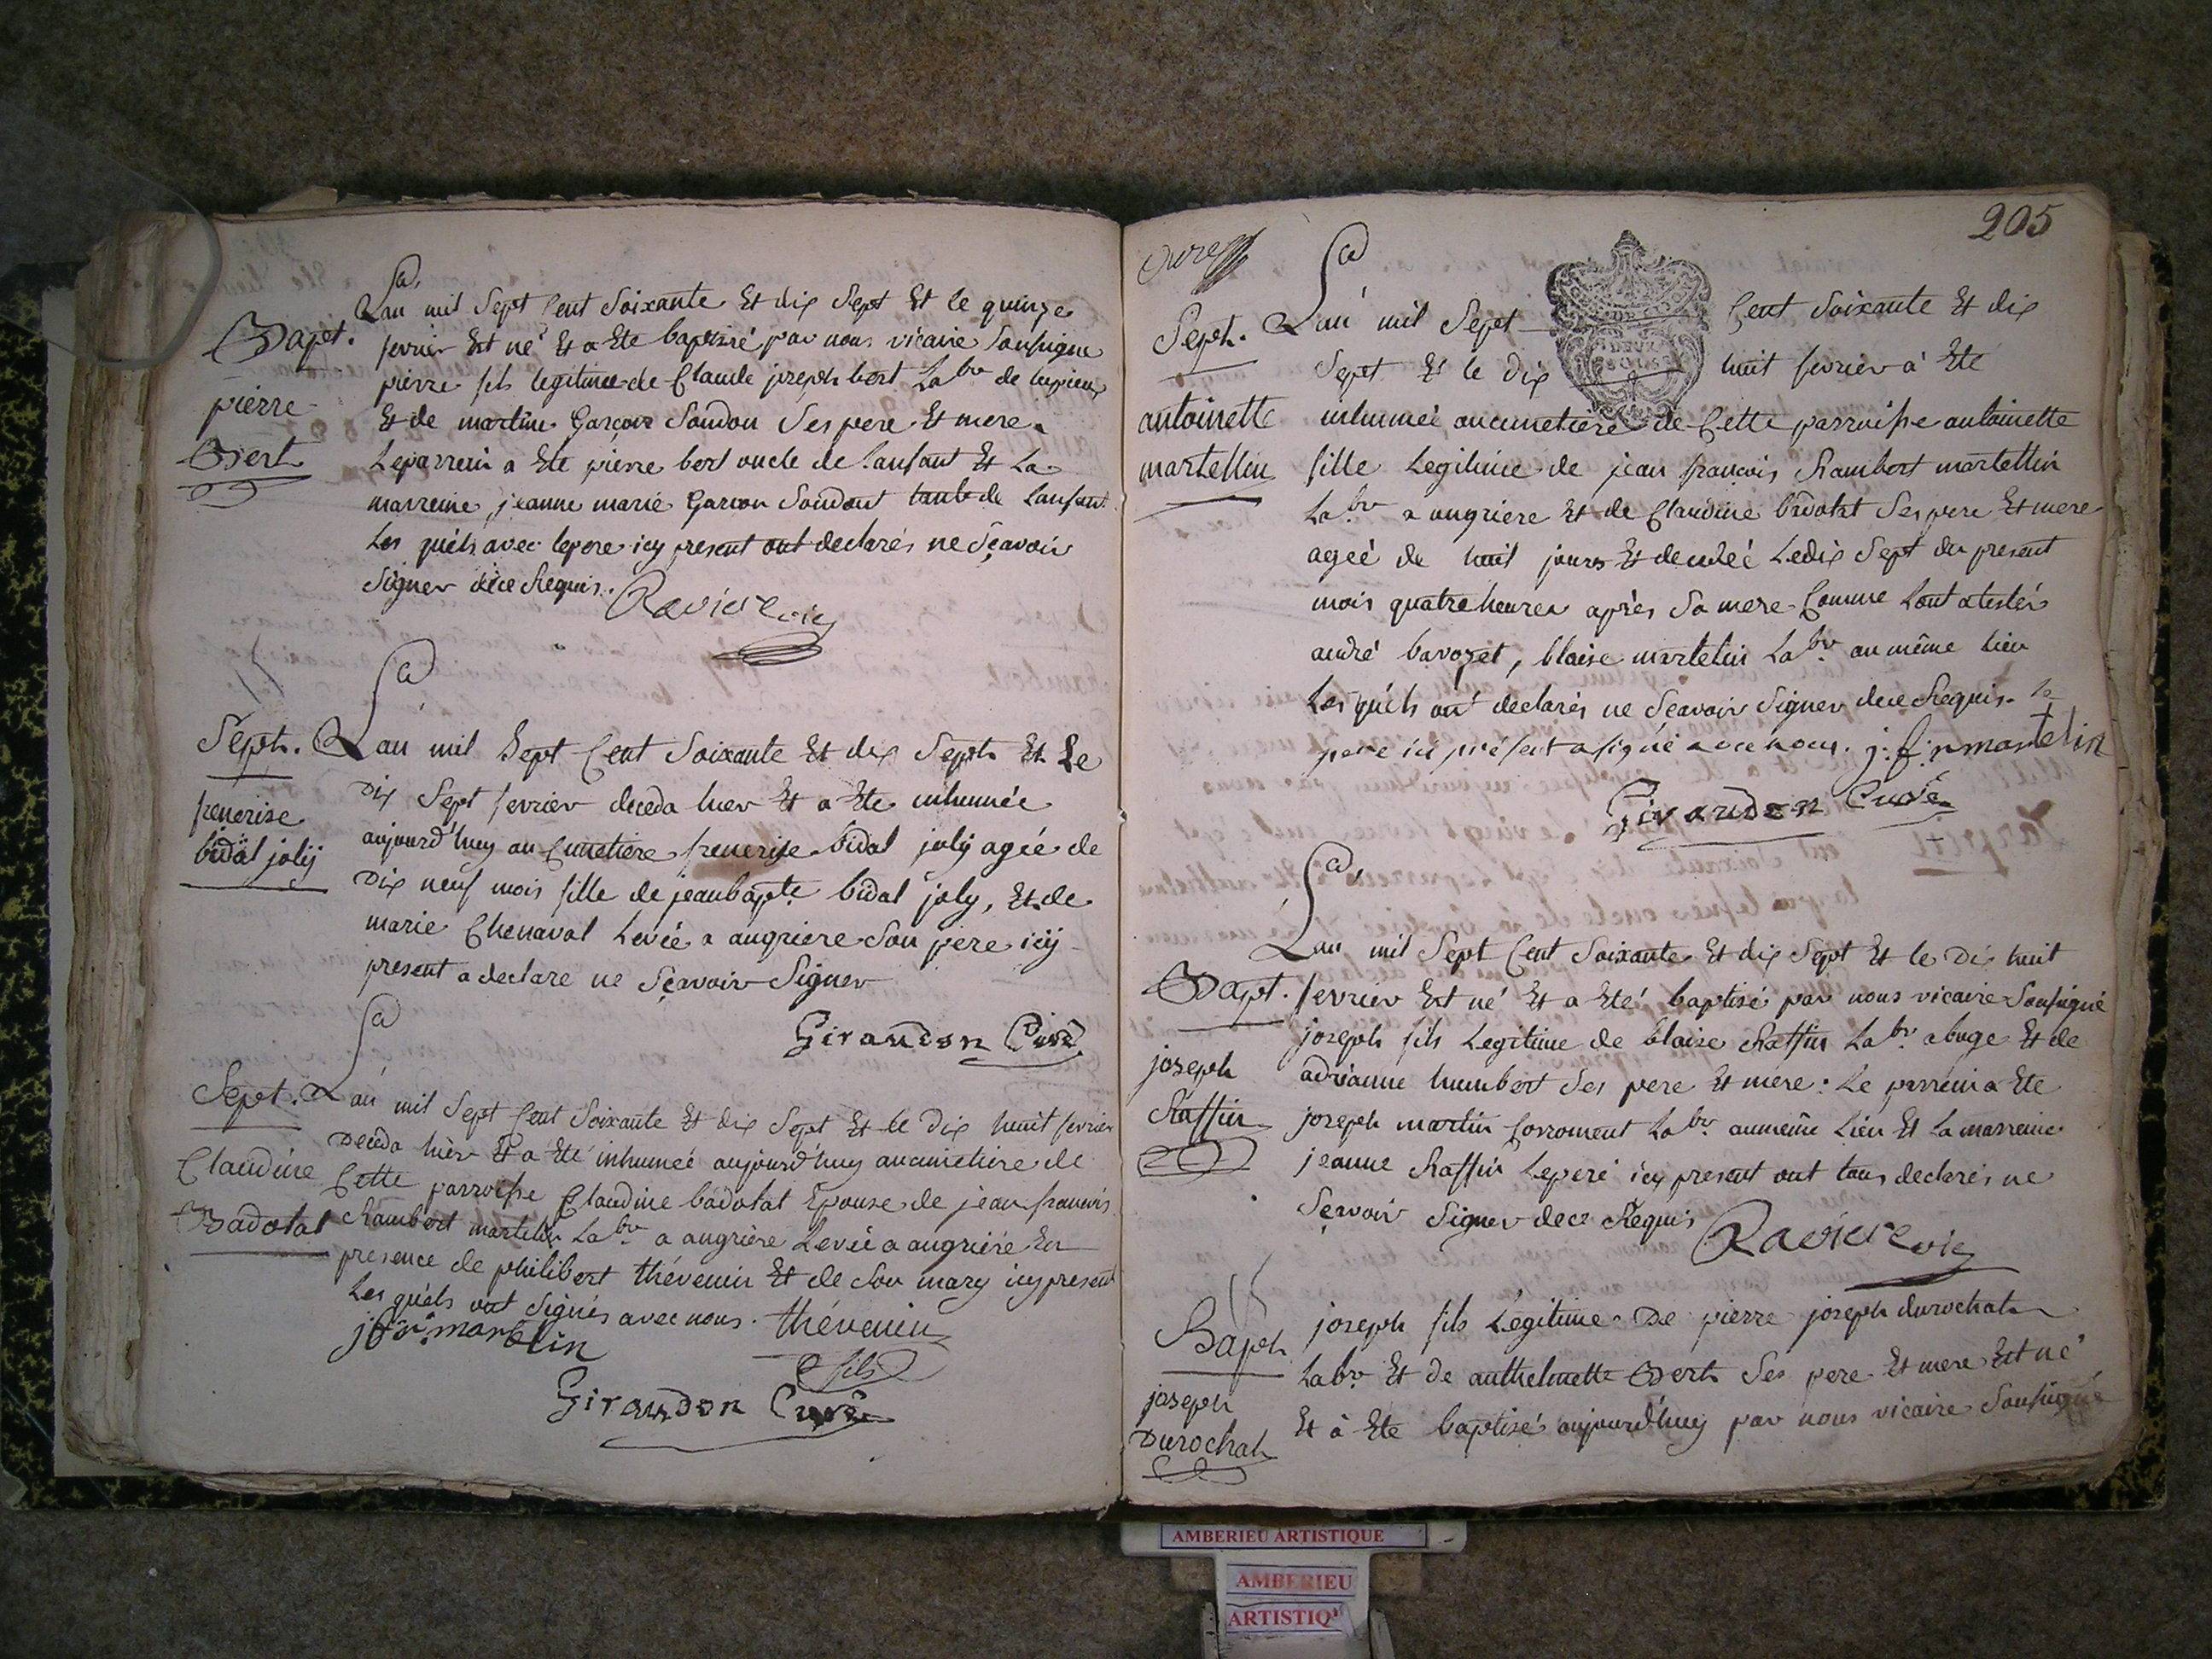 Bapt.
pierre
Bert
Lan mil Sept Cent Soixante Et dix Sept Et le quinze
fevrier Est né Et a Ete baptisé par nous vicaire Sousigne
pierre fils legitime de Claude joseph bert Labr de
Et de martine Garçon Soudon Ses pere Et mere.
Leparrein a Ete pierre bert oncle de lanfant Et La
marreine jeanne marie Garcon Soudont tante de lanfant
Les quels avec lepere icy present ont declarés ne Sçavoir
Signer dece Requis. Raviere vic
Sept.
frenerise
bidal jolij
Lan mil Sept Cent Soixante Et dix Septs Et Le
Dix Sept fevrier deceda hier Et a Ete inhumée
aujourd'huy au Cimetiere frenerise bidal jolij agée de
Dix neuf mois fille de jeanbapte bidal joly, Et de
marie Chenaval Levée a angriere Son pere icij
present a declare ne Sçavoir Signer
Giraudon Curé
Sept.
Claudine
Badolat
Lan mil Sept Cent Soixante Et dix Sept Et le Dix huit fevrier
Deceda hier Et a Eté inhumeé aujourd'huy aucimetiere de
Cette parroisse Claudine badolat Epouse de jean francois
Rambert martelin Labr a angriere Levée a angriere En
presence de philibert thévenin Et de Son mary icy present
Les quels ont Signés avec nous. thévenin
fils
Giraudon Curé
205
Sept.
antoinette
martellin
Lan mil Sept Cent Soixante Et dix
Sept Et le Dix huit fevrier à Eté
inhumeé aucimetiere de Cette parroisse antoinette
fille Legitime de jean francois Rambert martellin
Labr a angriere Et de Claudine badolat Ses pere Et mere
ageé de huit jours Et decedeé Ledix Sept du present
mois quatre heures après Sa mere Comme Lont atestés
andré bavozet, blaise martelin Labr au même lieu
Les quels ont declarés ne Sçavoir Signer dece Requis. le
pere ici présent a signé avec nous. j. f. r martelin
Giraudon Curé
Bapt.
joseph
Raffin
Lan mil Sept Cent Soixante Et dix Sept Et le Dix huit
fevrier Est né Et a Eté baptisé par nous vicaire Sousigné
joseph fils Legitime de blaise Raffin Labr abuge Et de
adrianne humbert Ses pere Et mere: Le parrein a Ete
joseph martin Corroment Labr aumême Lieu Et La marreine
jeanne Raffin Lepere icy present ont tous declarés ne
Sçavoir Signer dece Requis Raviere vic
Bapt
joseph
Durochat
joseph fils Légitime De pierre joseph durochat
Labr Et de anthelmette Bert Ses pere Et mere Est né
Et à Ete baptisé aujourd'huy par nous vicaire Sousigné
AMBERIEU ARTISTIQUE
AMBERIEU
ARTISTIQ